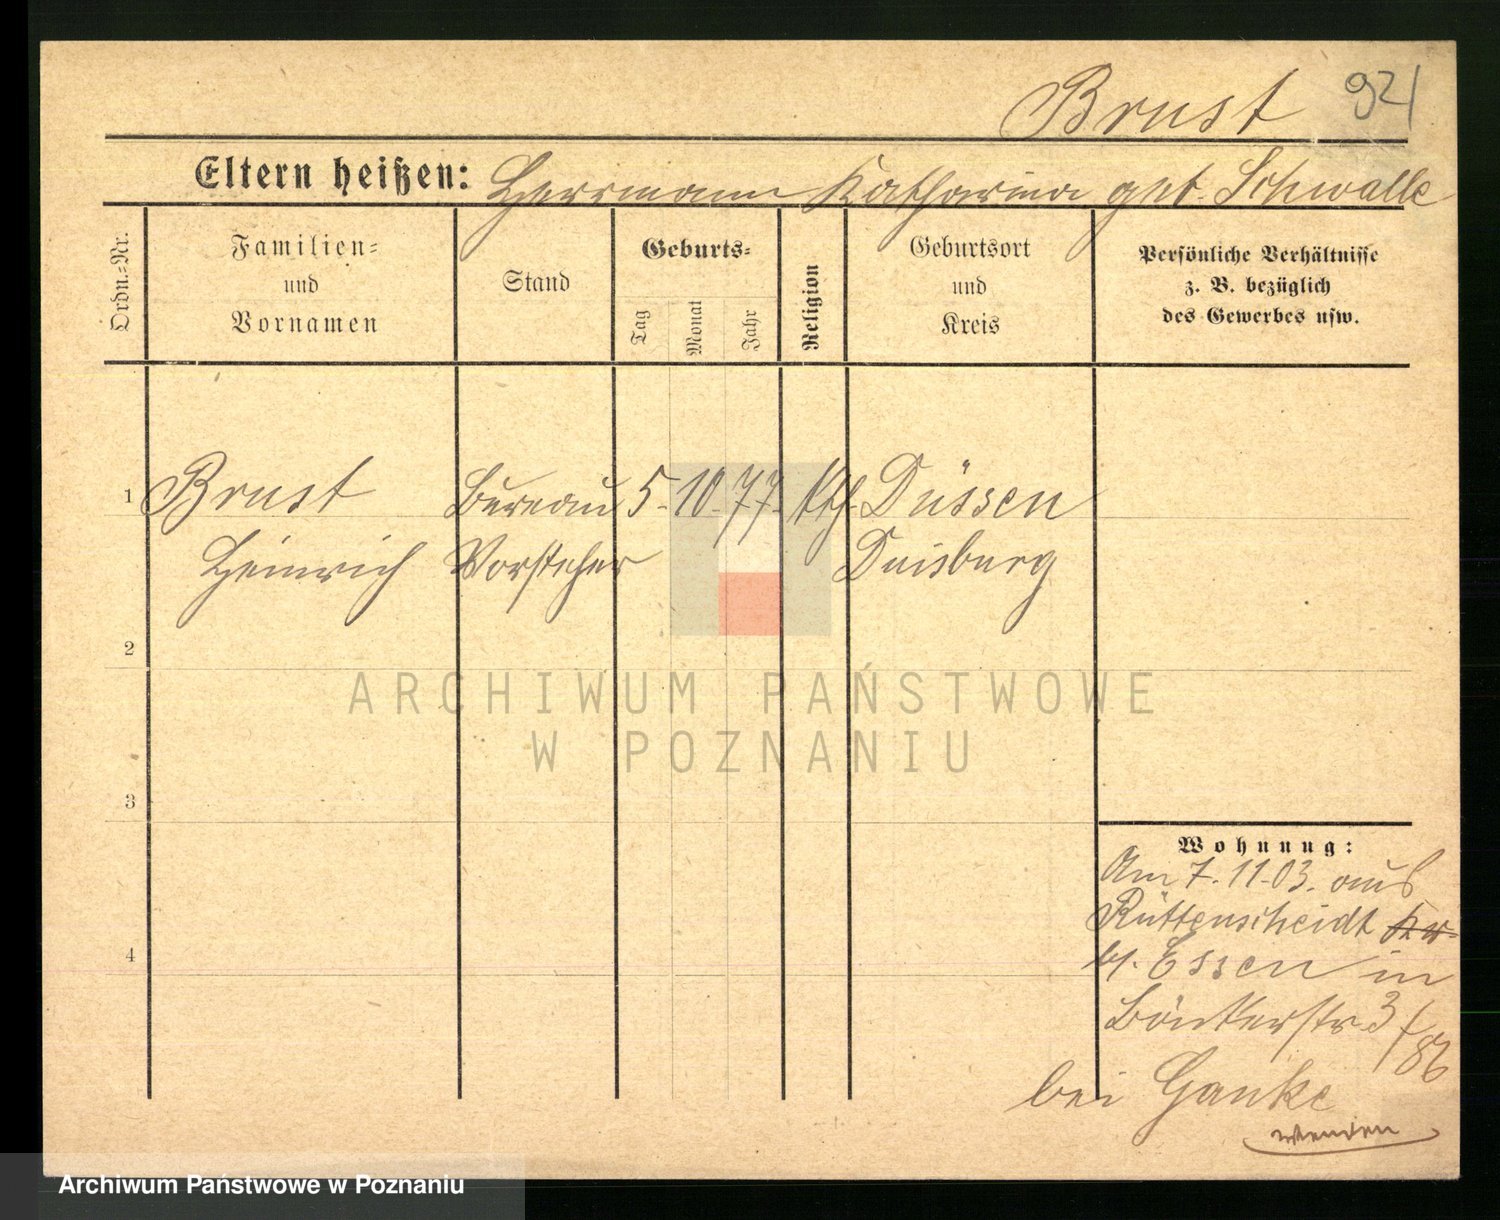 Brust 921
Eltern heißen: Herrmann Katharina geb. Schwalle
Ordn.-Nr.
Familien-
und
Vornamen
Stand
Geburts-
Tag
Monat
Jahr
Religion
Geburtsort
und
Kreis
Persönliche Verhältnisse
z. B. bezüglich
des Gewerbes usw.
1 Brust Bureau 5. 10. 77. kth. Düssen
Heinrich Vorsteher Duisburg
2
3
4
ARCHIWUM PAŃSTWOWE
W POZNANIU
Wohnung:
Am 7. 11. 03. aus
Rüttenscheidt
b/. Essen in
Bönkerstr. 3/86
bei Ganke
wenden
Archiwum Państwowe w Poznaniu